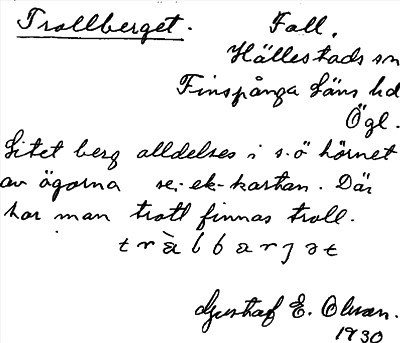 Trollberget.
Fall.
Hällestads sn
Finspånga läns hd
Ögl.
Litet berg alldeles i s.ö hörnet
av ägorna se, ek-kartan. Där
har man trott finnas troll.
Gustaf E. Olsson.
1930